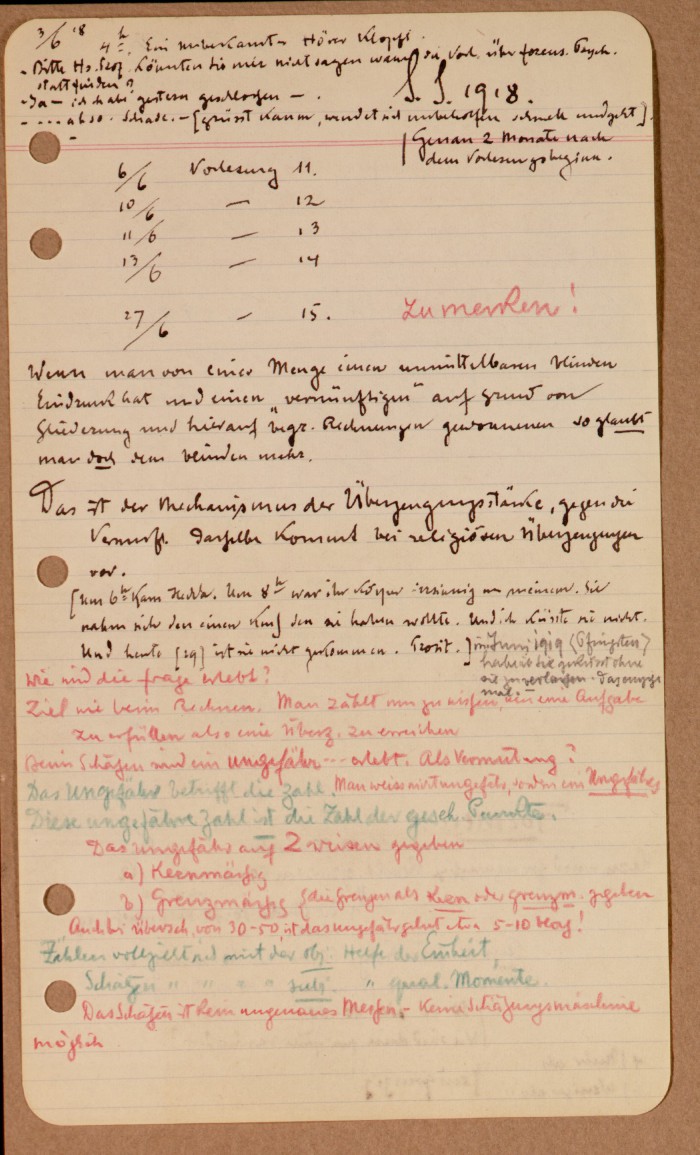 3/6 18 4h. Ein unbekannter Hörer klopft.
- Bitte Hr. Prof. könnten Sie mir nicht sagen wann die Vorl. über forens. Psych.
stattfinden?
- Ja - ich habe gestern geschlossen -.
- .... also. Schade. - [grüsst kaum, wendet sich unbeholfen schnell und geht].
S. S. 1918.
Genau 2 Monate nach
dem Vorlesungsbeginn.
6/6 Vorlesung 11.
10/6 — 12
11/6 — 13
13/6 — 14
27/6 — 15.
Zu merken!
Wenn man von einer Menge einen unmittelbaren blinden
Eindruck hat und einen "vernünftigen" auf Grund von
Gliederung und hierauf begr. Rechnungen gewonnenen so glaubt
man doch dem blinden mehr.
Das ist der Mechanismus der Überzeugungsstärke, gegen die
Vernunft. Dasselbe kommt bei religiösen Überzeugungen
vor.
[Um 6h kam Um 8h war ihr Körper an meinem. Sie
nahm sich den einen Kuss den sie haben wollte. Und ich küsste sie nicht.
Und heute [29] ist sie nicht gekommen. Prosit.] im Juni 1919 (Pfingsten)
habe ich sie geküsst ohne
sie zu verlangen. Das einzige
mal. -
Wie wird die Frage erlebt?
Ziel wie beim Rechnen. Man zählt um zu wissen, um eine Aufgabe
zu erfüllen also eine Überz. zu erreichen
Beim Schätzen wird ein ungefähr --- erlebt. Als Vermutung?
Das Ungefähr betrifft die Zahl. Man weiss nicht ungefähr, sondern ein Ungefähres
Diese ungefähre Zahl ist die Zahl der gesch. Punkte.
Das ungefähr auf 2 weisen gegeben
a) Kernmässig
b) Grenzmässig {die Grenzen als Kern oder grenzm. gegeben
Auch bei Übersch. von 30-50, ist das ungefähr gebiet etwa 5-10 stets!
Zählen vollzieht sich mit der obj. Hilfe der Einheit,
Schätzen " " " " subj. " qual. Momente.
Das Schätzen ist kein ungenaues Messen, - keine Schätzungsmaschine
möglich.